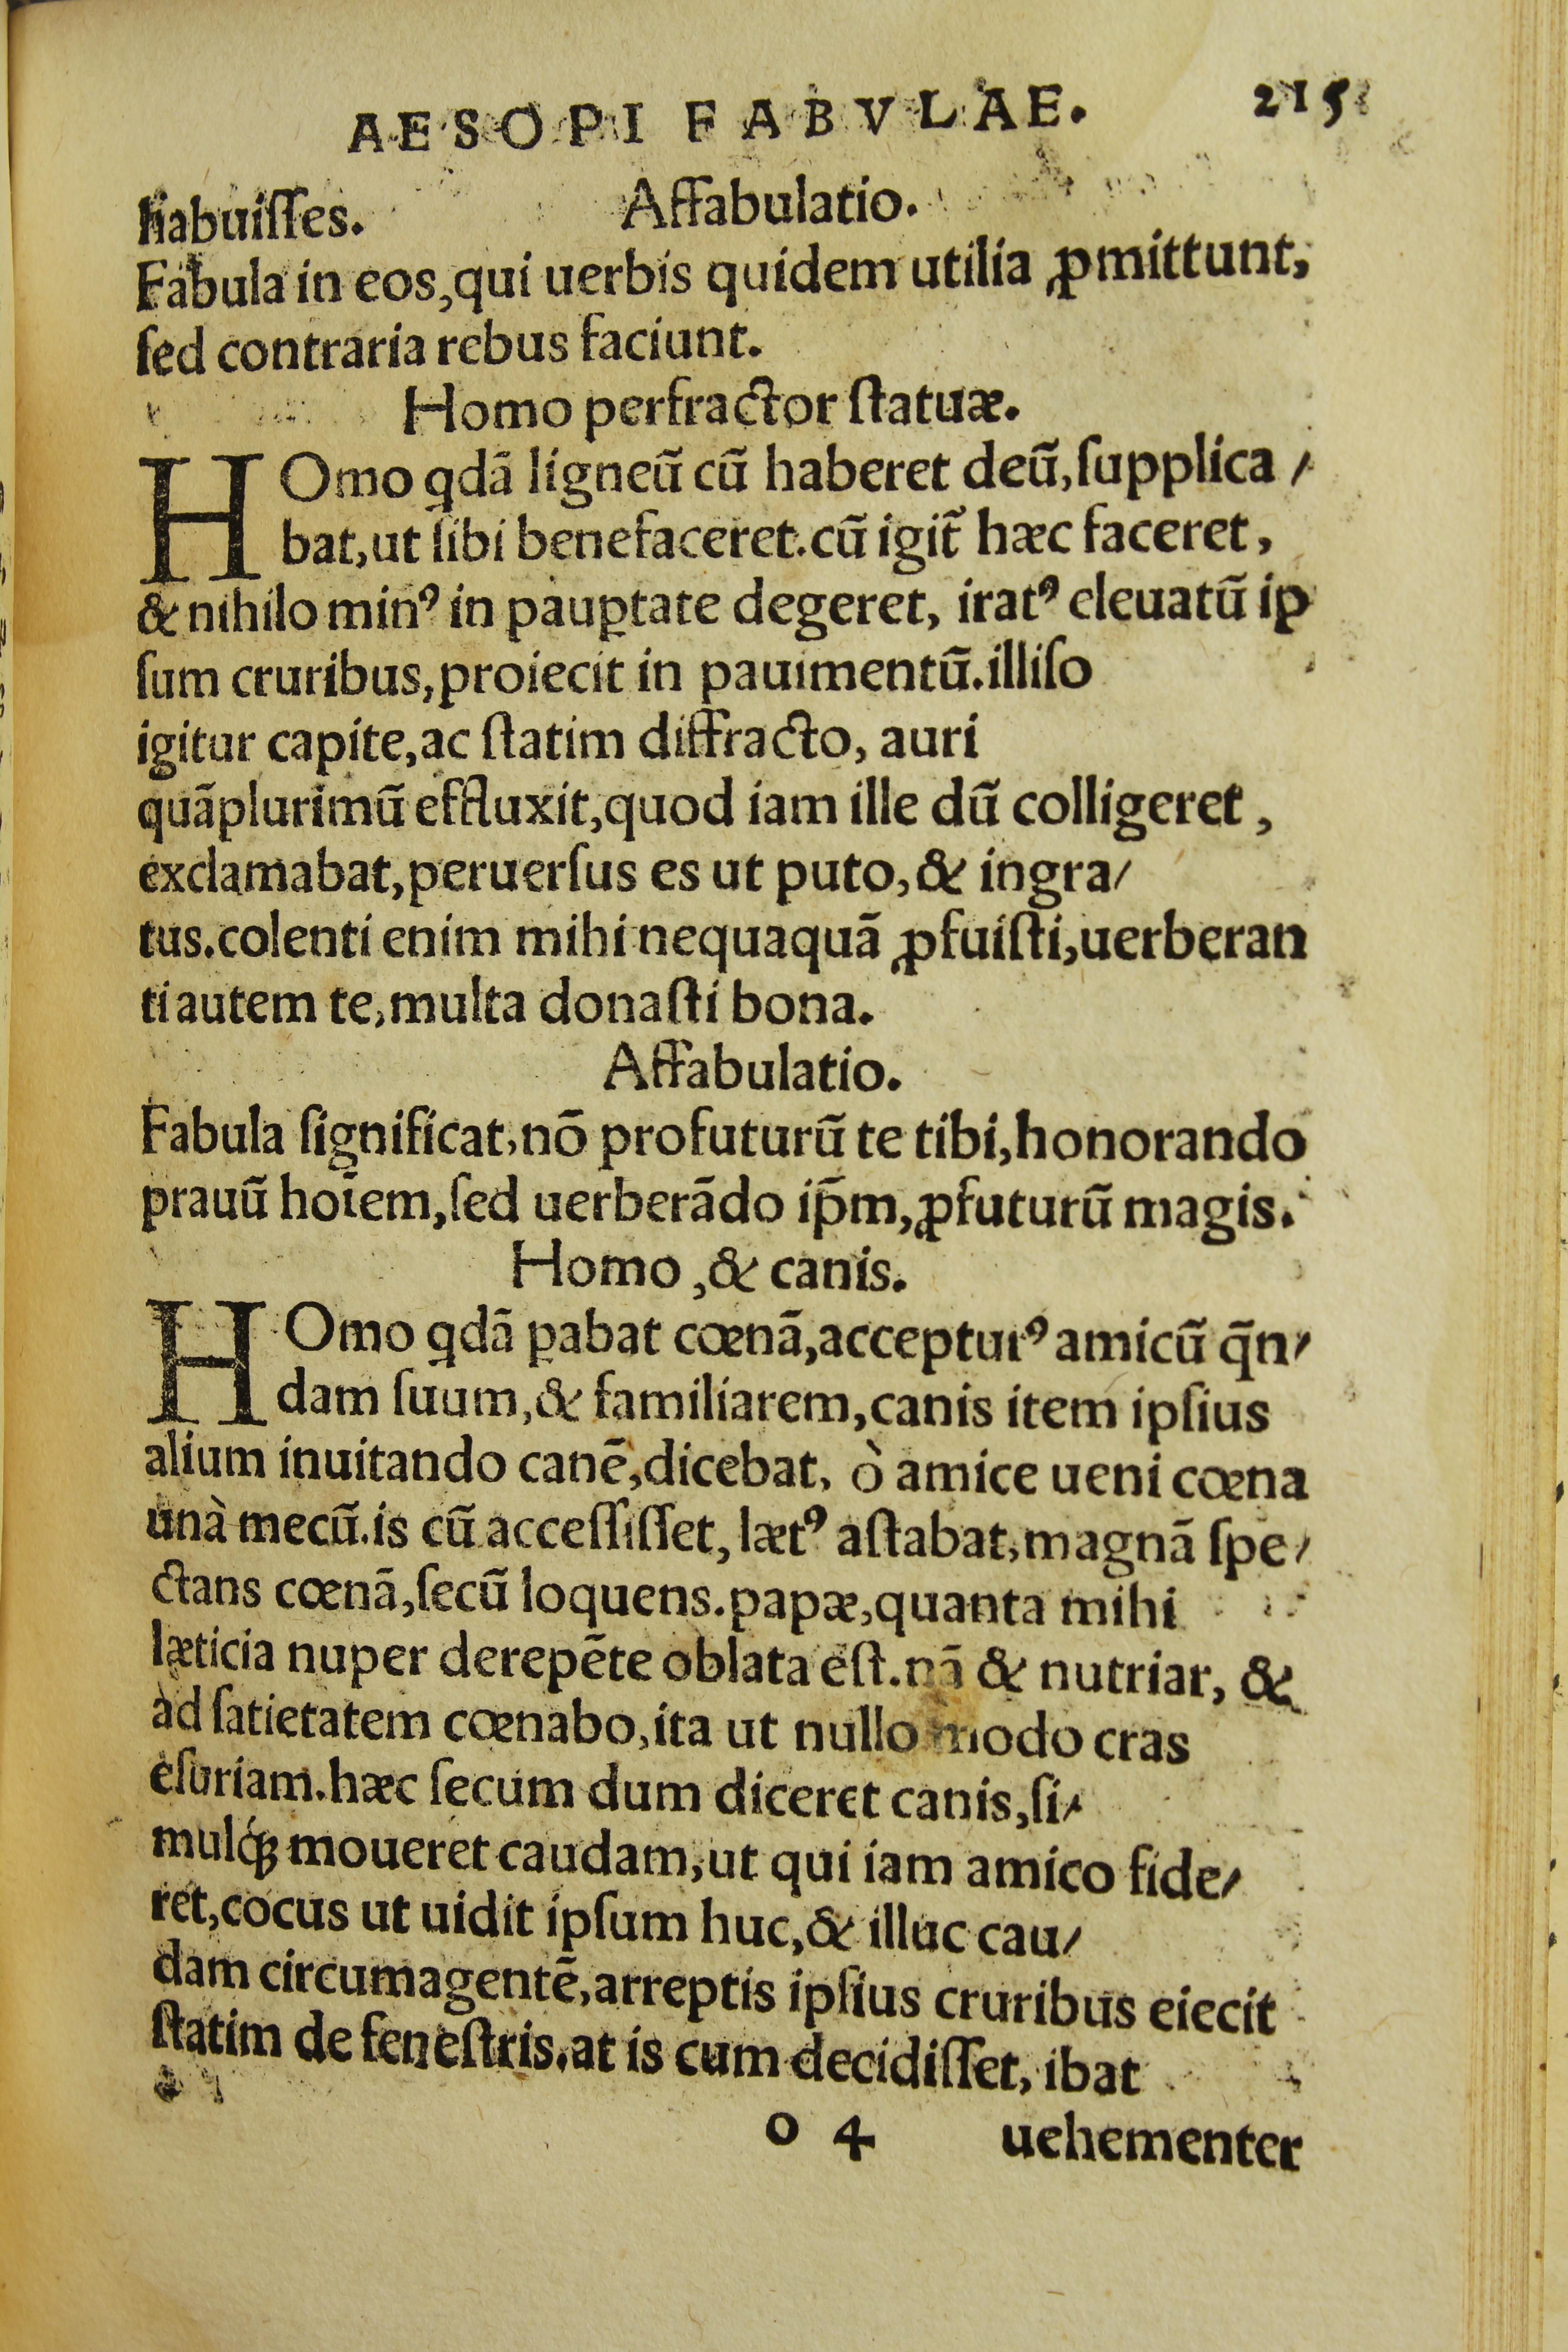 AESOPI FABVLAE. 215
habuiſſes. Affabulatio.
Fabula in eos,qui uerbis quidem utilia ꝓmittunt,
ſed contraria rebus faciunt.
Homo perfractor ſtatuæ.
HOmo qdã ligneũ cũ haberet deũ,ſupplica/
bat,ut ſibi benefaceret.cũ igit̃ hæc faceret,
& nihilo minꝰ in pauꝑtate degeret, iratꝰ eleuatũ ip
ſum cruribus,proiecit in pauimentũ.illiſo
igitur capite,ac ſtatim diffracto, auri
quãplurimũ effluxit,quod iam ille dũ colligeret,
exclamabat,peruerſus es ut puto,& ingra/
tus.colenti enim mihi nequaquã ꝓfuiſti,uerberan
ti autem te,multa donaſti bona.
Affabulatio.
Fabula ſignificat,nõ profuturũ te tibi,honorando
prauũ hoĩem,ſed uerberãdo ip̃m,ꝓfuturũ magis.
Homo,& canis.
HOmo qdã ꝑabat cœnã,accepturꝰ amicũ q̃n/
dam ſuum,& familiarem,canis item ipſius
alium inuitando canẽ,dicebat, ò amice ueni cœna
unà mecũ.is cũ acceſſiſſet, lætꝰ aſtabat,magnã ſpe/
ctans cœnã,ſecũ loquens.papæ,quanta mihi
læticia nuper derepẽte oblata eſt.nã & nutriar, &
ad ſatietatem cœnabo,ita ut nullo modo cras
eſuriam.hæc ſecum dum diceret canis,ſi/
mulq́ꝫ moueret caudam,ut qui iam amico fide/
ret,cocus ut uidit ipſum huc,& illuc cau/
dam circumagentẽ,arreptis ipſius cruribus eiecit
ſtatim de feneſtris.at is cum decidiſſet, ibat
o 4 uehementer